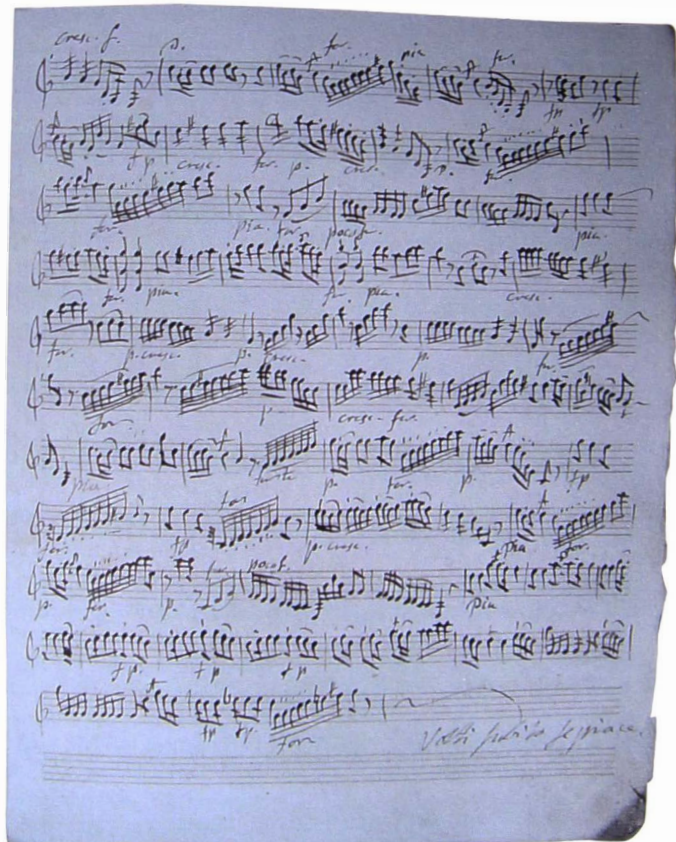 cresc. f. p. for. pia for.
fp fp
fp cresc. for. p. cresc. fp. f.
for. pia. for. pocof.
pia.
for. pia. for. pia. cresc.
for. p. cresc. p. cresc. p. for.
for p cresc. for.
pia forte p. for. p. fp
for. fp for p. cresc. pia for.
p. for. p. for. pocof. pia
fp. fp fp
fp fp
for
Volti subito se piace.